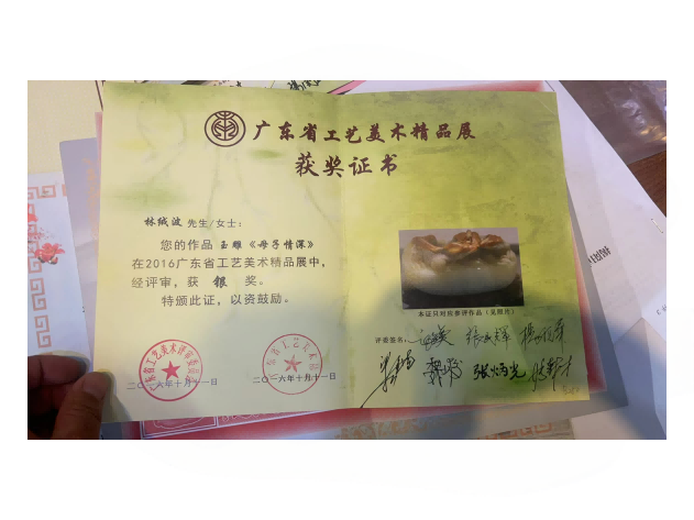 广东省工艺美术精品展
获奖证书
林绒波 先生/女士：
您的作品 玉雕《母子情深》
在2016广东省工艺美术精品展中，
经评审，获 银 奖。
特颁此证，以资鼓励。
本证只对应参评作品（见照片）
评委签名：
张炳光
广东省工艺美术评审委员会
二〇一六年十月十一日
广东省工艺美术
二〇一六年十月十一日